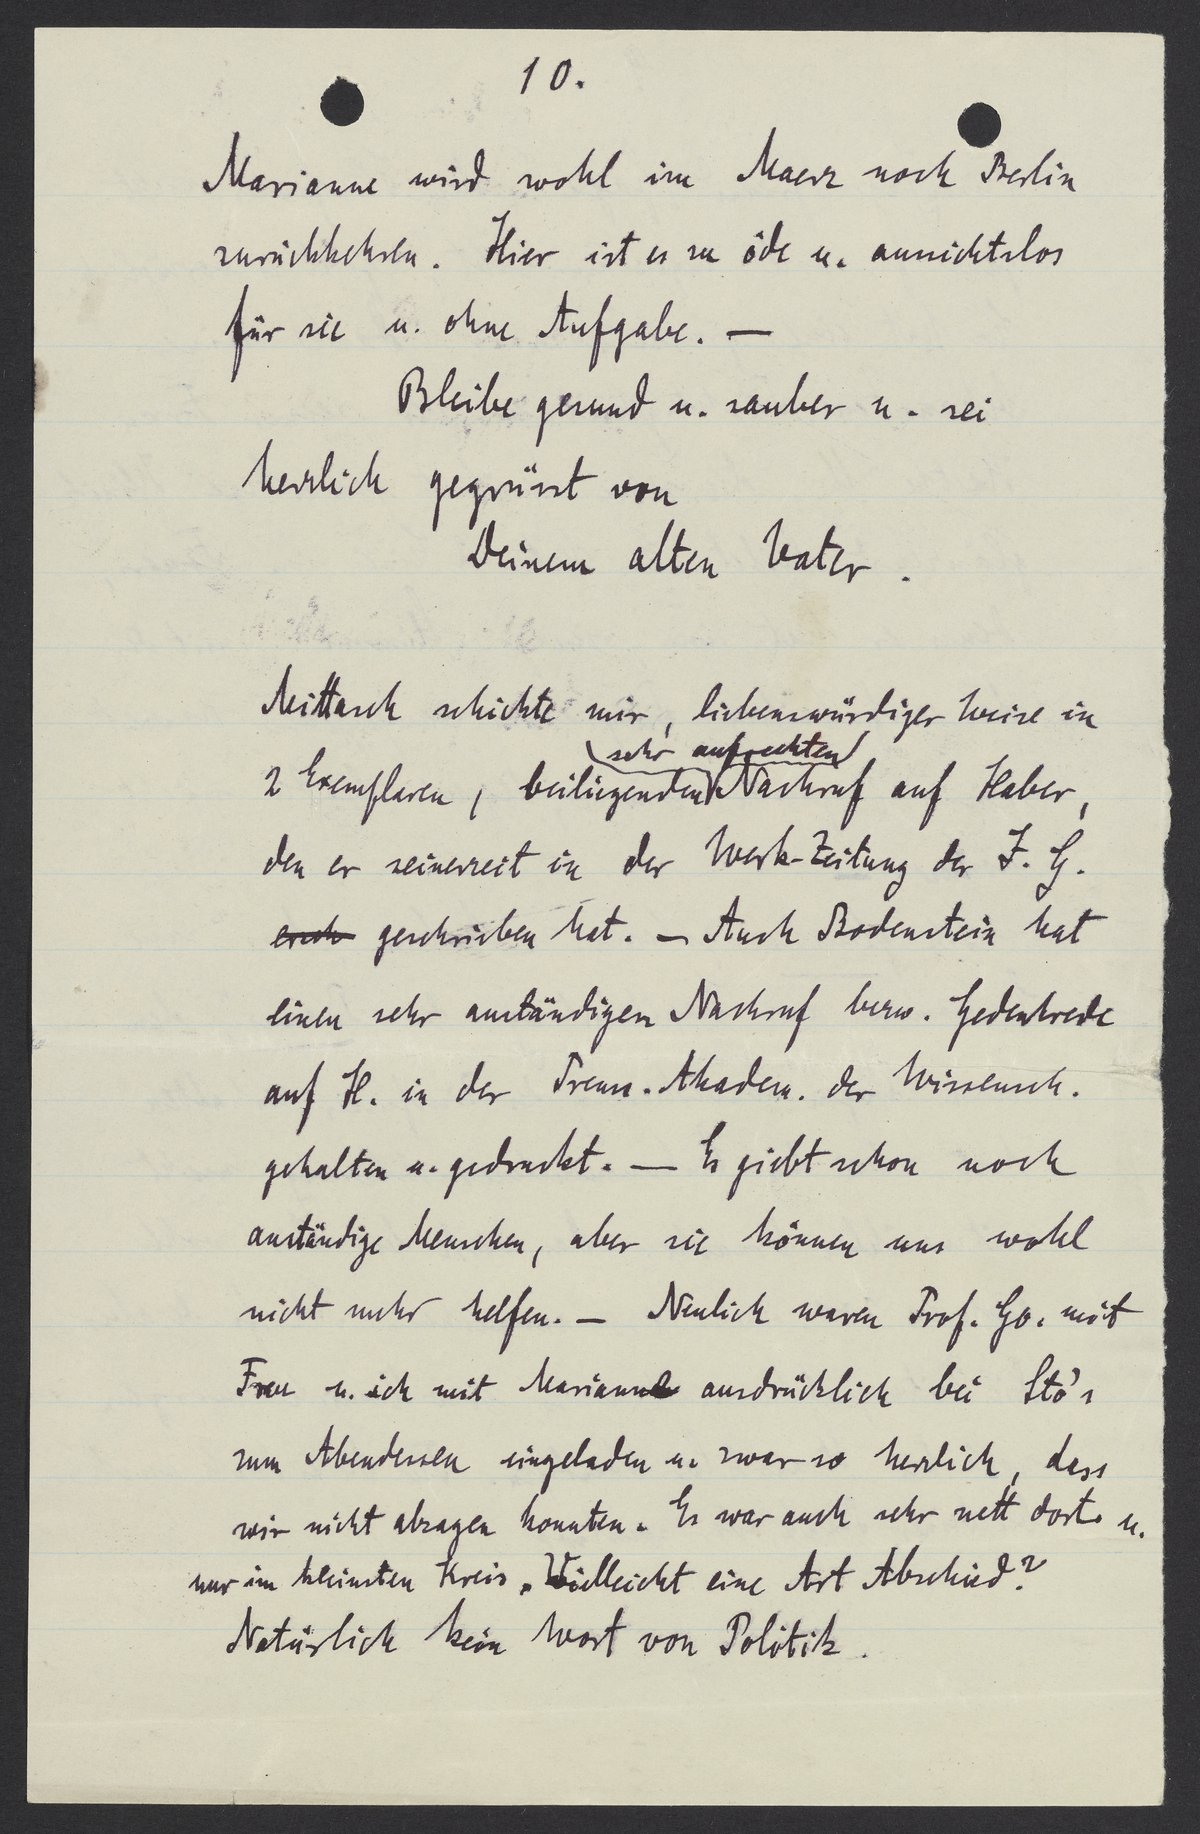 10.
Marianne wird wohl im Maerz nach Berlin
zurückkehren. Hier ist es zu öde u. aussichtslos
für sie u. ohne Aufgabe. —
Bleibe gesund u. sauber u. sei
herzlich gegrüsst von
Deinem alten Vater.
Mittasch schickte mir, liebenswürdiger Weise in
sehr aufrechten
2 Exemplaren, beiliegenden Nachruf auf Haber,
den er seinerzeit in der Werk-Zeitung der I. G.
geschrieben hat. — Auch Bodenstein hat
einen sehr anständigen Nachruf bezw. Gedenkrede
auf H. in der Preuss. Akadem. der Wissensch.
gehalten u. gedruckt. — Es giebt schon noch
anständige Menschen, aber sie können uns wohl
nicht mehr helfen. — Neulich waren Prof. Go. mit
Frau u. ich mit Marianne ausdrücklich bei Stö's
zum Abendessen eingeladen u. zwar so herzlich, dass
wir nicht absagen konnten. Es war auch sehr nett dort u.
nur im kleinsten Kreis. Vielleicht eine Art Abschied?
Natürlich kein Wort von Politik.